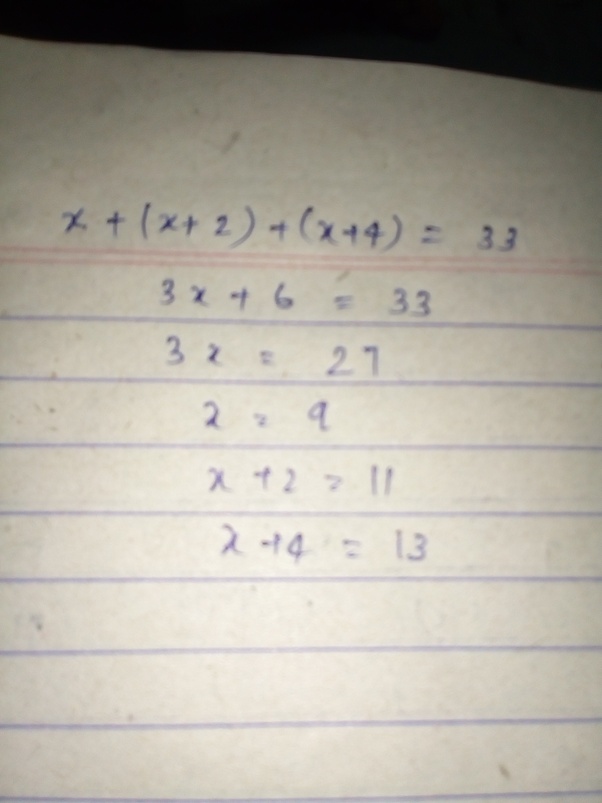 x + (x+ 2) + (x+4) = 33
3x + 6 = 33
3x = 27
x = 9
x + 2 = 11
x + 4 = 13